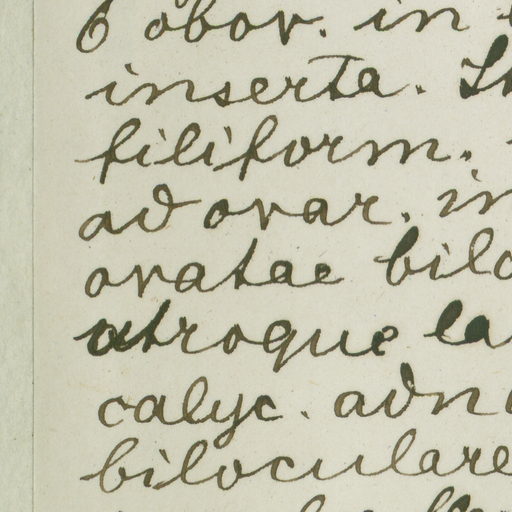 6 obov. in
inserta. St
filiform.
ad ovar. in
ovatae bilo
utroque la
calyc. adn
biloculare